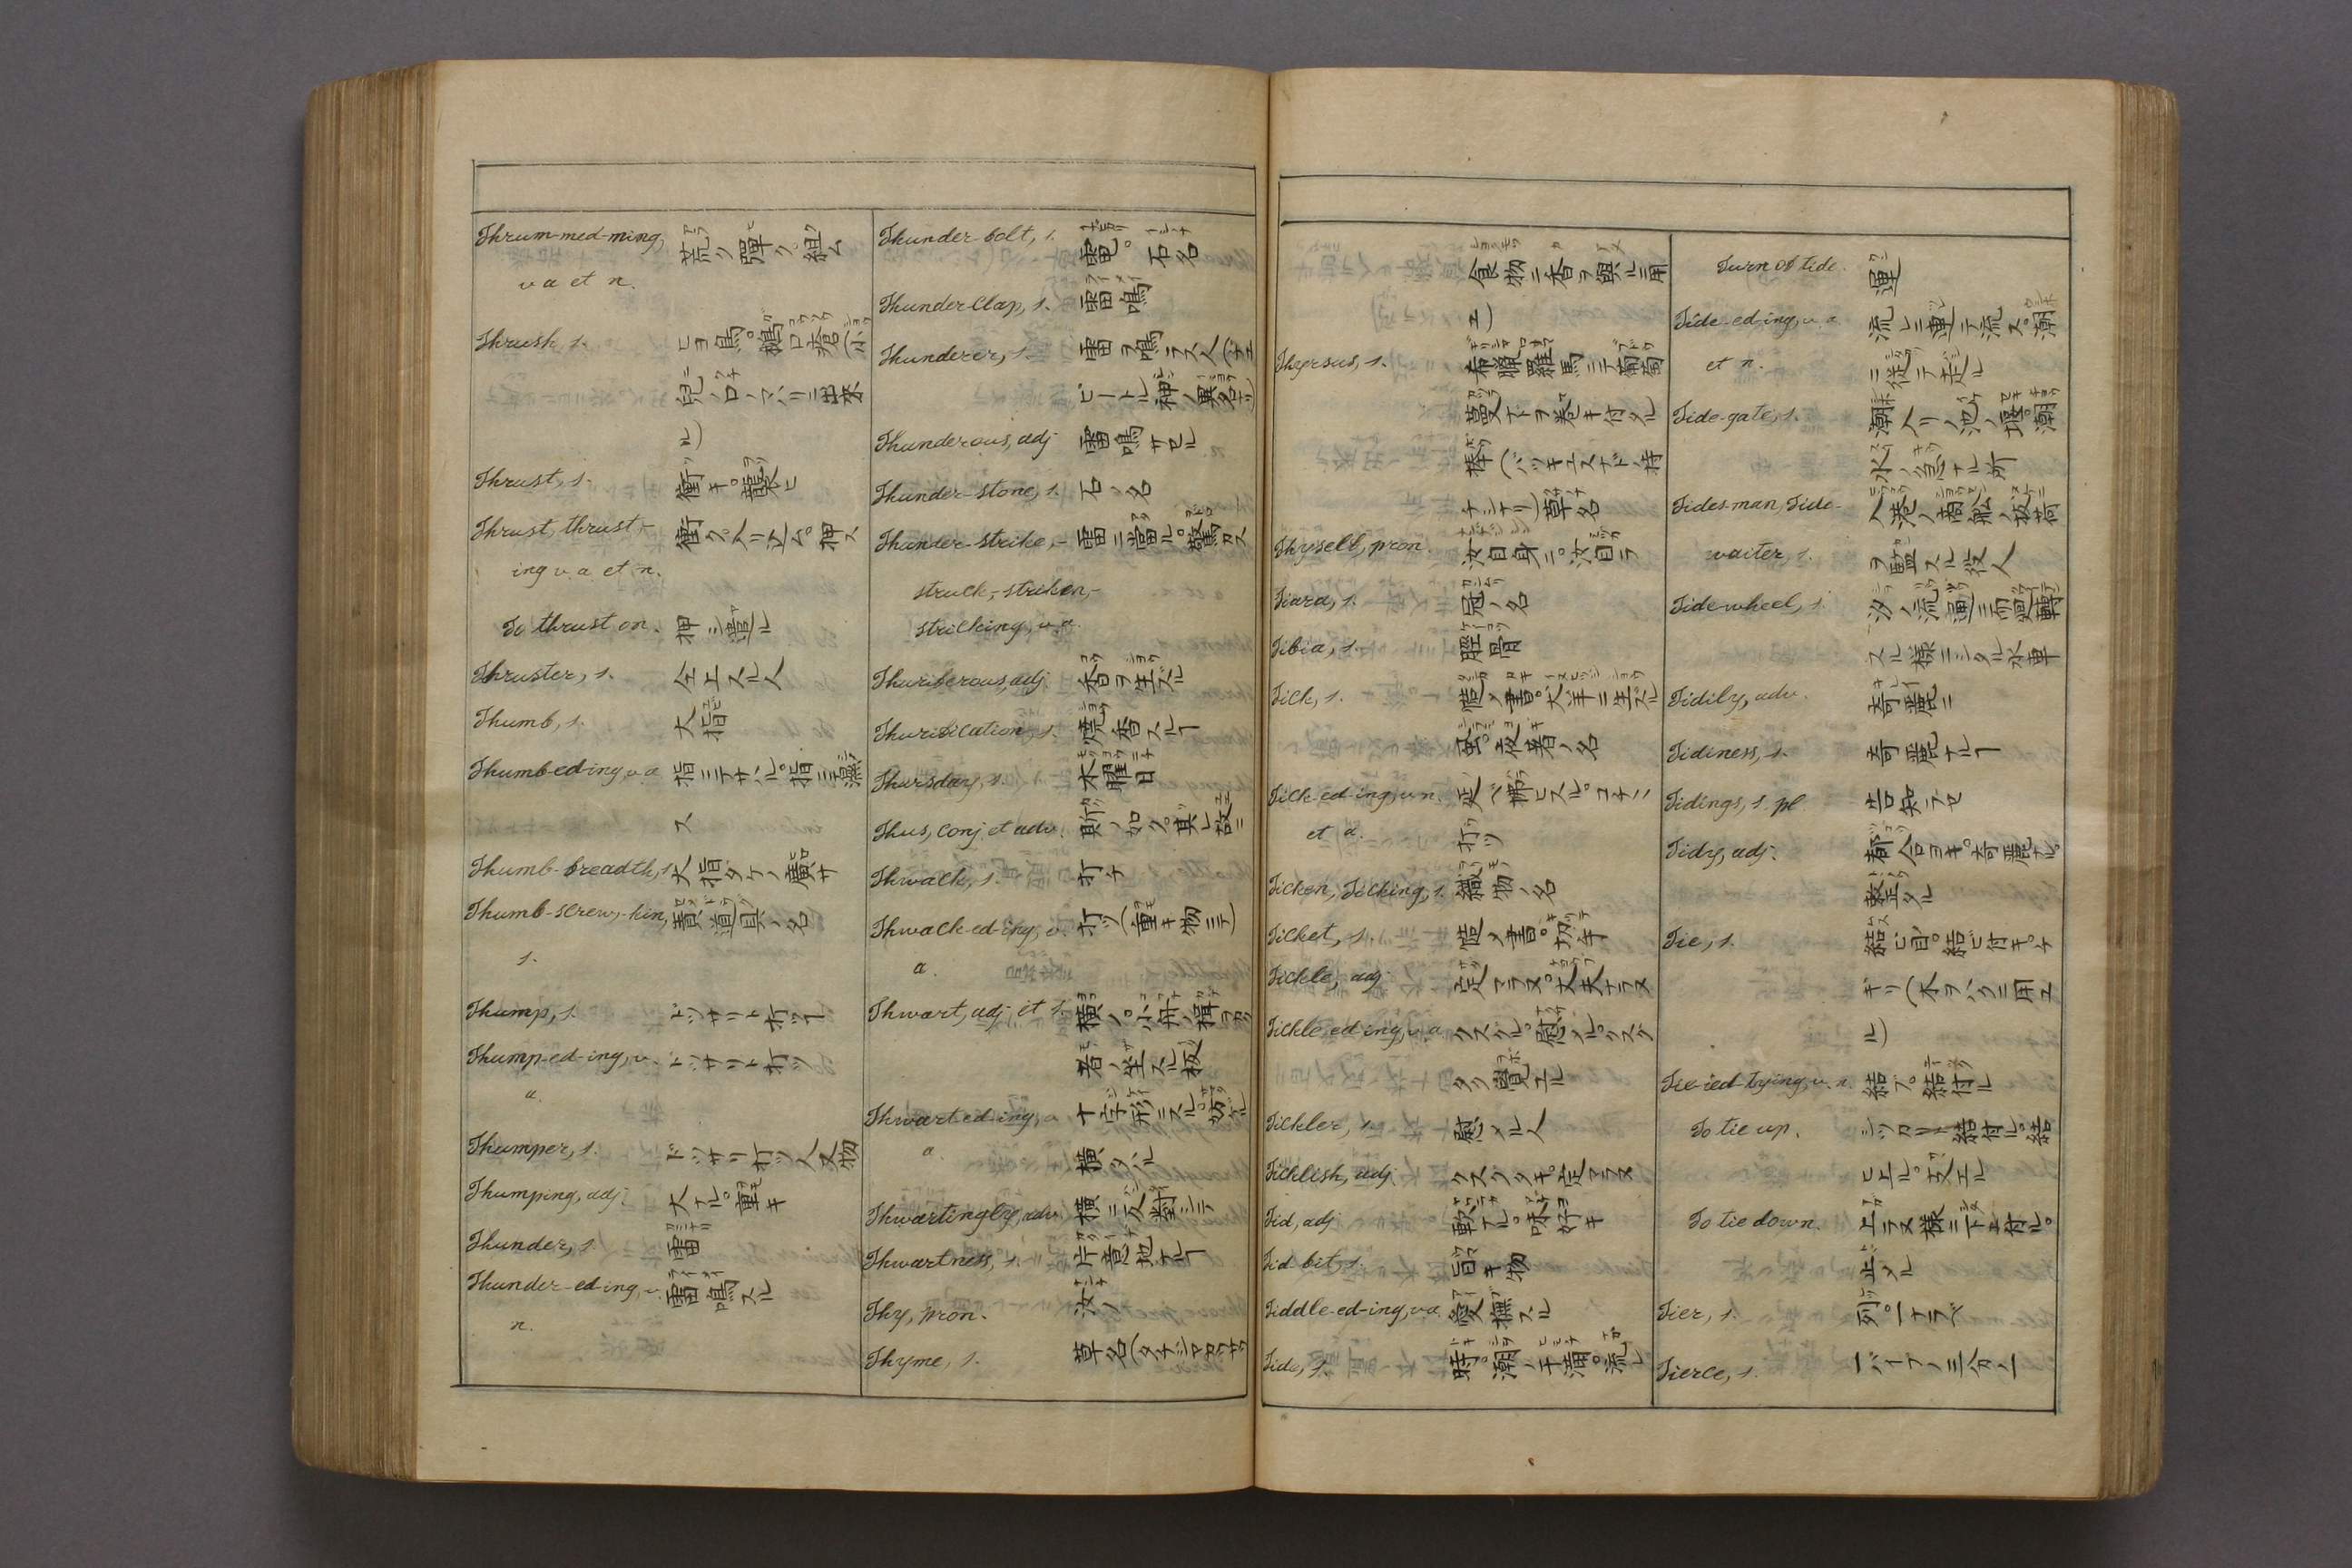 Thrum-med-ming, 荒ク彈ク組ム
v a et n.
Thrush, s. ヒヨ鳥。鵝口瘡(小
兒ノ口ノマハリニ出来
ル)
Thrust, s. 衝キ。襲ヒ
Thrust, thrust,- 衝ク。入リ込ム。押ス
ing v a et n.
To thrust on. 押シ遣ル
Thruster, s. 仝上スル人
Thumb, s. 大指
Thumb-ed-ing v a 指ニテサハル。指ニテ濕
ス
Thumb-breadth, s. 大指ダケノ廣サ
Thumb-screw,-kin, 責道具ノ名
s.
Thump, s. ドッサリト打ツ
Thump-ed-ing, v. ドッサリト打ツ
a.
Thumper, s. ドッサリ打ツ人又物
Thumping, adj. 大ナル。重キ
Thunder, s. 雷
Thunder-ed-ing, v. 雷鳴スル
n.
Thunder-bolt, s. 雷電。石名
Thunder-clap, s. 雷鳴
Thunderer, s. 雷ヲ鳴ラス人
ビートル神ノ異名
Thunderous, adj 雷鳴サセル
Thunder-stone, s. 石ノ名
Thunder-strike,- 雷ニ當ル。驚カス
struck,-striken,-
stricking, v. a.
Thuriferous, adj. 香ヲ生ズル
Thurification, s. 焼香スルヿ
Thursday, s. 木曜日
Thus, conj et adv. 如ク。其レ故ニ
Thwack, s. 打チ
Thwack-ed-ing, v. 打ツ(重キ物ニテ)
a.
Thwart, adj et s. 横ノ。小舟ノ楫ヲカク
者ノ坐スル板
Thwart-ed-ing, v 十字形ニスル。妨ル
a. 横タハル
Thwartingly, adv. 横ニ。反對シテ
Thwartness, s. 片意地ナルヿ
Thy, pron. 汝ノ
Thyme, s. 草名
食物ニ香ヲ與ルニ用
ユ)
Thyrsus, s. 希臘羅馬ニテ葡萄
蔓ナドヲ巻キ付タル
棒(バッキュスナド持
チシナリ)草名
Thyself, pron. 汝自身ニ。汝自ラ
Tiara, s. 冠ノ名
Tibia, s. 脛骨
Tick, s. 書。犬羊ニ生ズル
虱。夜著ノ名
Tick-ed-ing, v n. 延ベ拂ヒスル。コチ〱
et a. 打ツ
Ticken, Ticking, s. 織物ノ名
Ticket, s. 書。切手
Tickle, adj. 定マラヌ。丈夫ナラヌ
Tickle-ed-ing, v. a. クスグル。慰メル。クスグ
タク覺エル
Tickler, s. 慰メル人
Ticklish, adj. クスグタキ。定マラヌ
Tid, adj. 軟ナル。味好キ
Tid-bit, s. 旨キ物
Tiddle-ed-ing, v a. 愛撫スル
Tide, s. 時。潮ノ干滿。流レ
Turn of tide. 運
Tide-ed-ing, v. a. 流レニ運テ流ス。潮
et n. ニ従テ走ル
Tide-gate, s. 潮入リノ池ノ堰。潮
水ノ急ナル所
Tides-man, Tide- 入港ノ商舩ノ抜荷
waiter, s. ヲ監スル役人
Tide-wheel, s. 汐ノ流通ニ而廻轉
スル様ニシタル水車
Tidily, adv. 奇麗ニ
Tidiness, s. 奇麗ナルヿ
Tidings, s. pl. 告知ラセ
Tidy, adj. 都合ヨキ。奇麗ナル。
整タル
Tie, s. 結ビ目。結ビ付キ。チ
ギリ(木ヲハクニ用ユ
ル)
Tie-ied-tying, v. a. 結ブ。結付ル
To tie up. シッカリト結付ル。結
ヒ上ル。支エル
To tie down. 上ラヌ様ニ下エ付ル。
止メル
Tier, s. 列。一ナラベ
Tierce, s. 一パイプノ三分ノ一